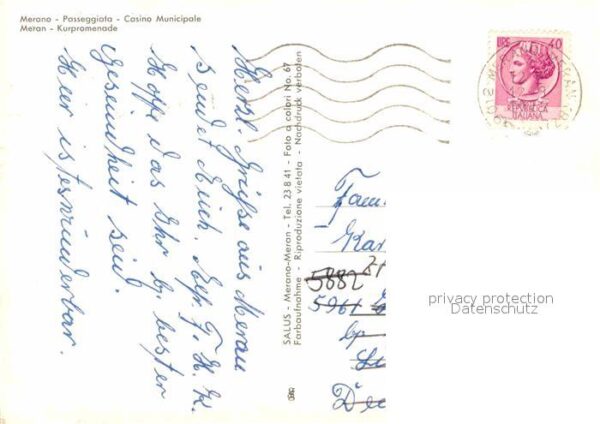 Merano - Passeggiata - Casino Municipale
Meran - Kurpromenade
Herzl. Grüße aus Meran
sendet Euch
Hoffe das Ihr bei bester
Gesundheit seid.
Hier ist es wunderbar.
SALUS - Merano-Meran - Tel. 23 8 41 - Foto a colori No. 67
Farbaufnahme - Riproduzione vietata - Nachdruck verboten
LIRE 40
REPUBBLICA
ITALIANA
Fam
Kar
5882
5961
privacy protection
Datenschutz